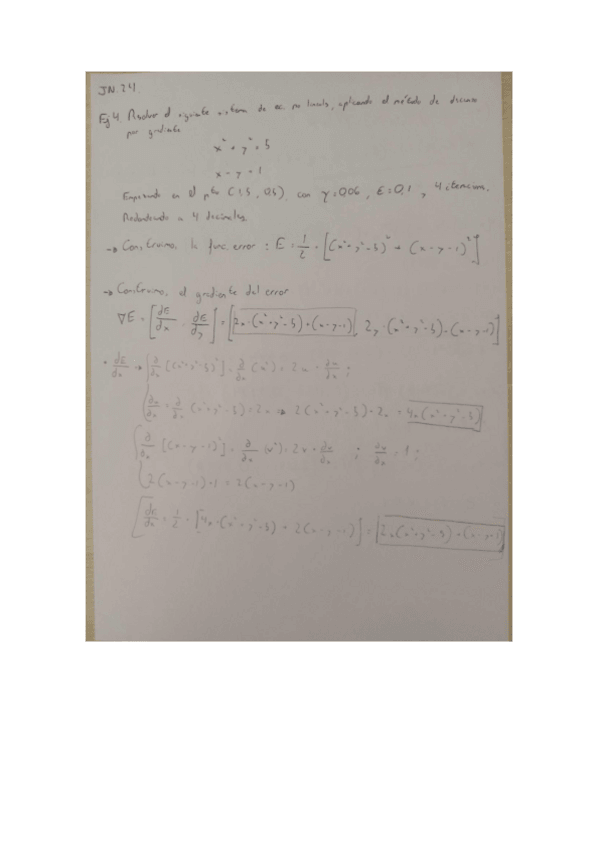 JN.24
Ej 4. Resolver el siguiente sistema de ec no lineales, aplicando el método de descenso
por gradiente
x² + y² = 5
x - y = 1
Empezando en el pto (1.5, 0.5), con γ = 0.06, ε = 0.1, 4 iteraciones.
Redondeando a 4 decimales.
→ Construimos la func. error: E = 1/2 · [(x²+y²-5)² + (x-y-1)²]
→ Construimos el gradiente del error
∇E = [dE/dx, dE/dy] = [2x·(x²+y²-5)+(x-y-1), 2y·(x²+y²-5)-(x-y-1)]
· dE/dx → ∂/∂x [(x²+y²-5)²] = ∂/∂x (u²) = 2u · ∂u/∂x ;
∂u/∂x = ∂/∂x (x²+y²-5) = 2x ⇒ 2(x²+y²-5)·2x = 4x(x²+y²-5)
∂/∂x [(x-y-1)²] = ∂/∂x (u²) = 2u · ∂u/∂x ; ∂u/∂x = 1 ;
2(x-y-1)·1 = 2(x-y-1)
dE/dx = 1/2 · [4x·(x²+y²-5) + 2(x-y-1)] = 2x(x²+y²-5)+(x-y-1)